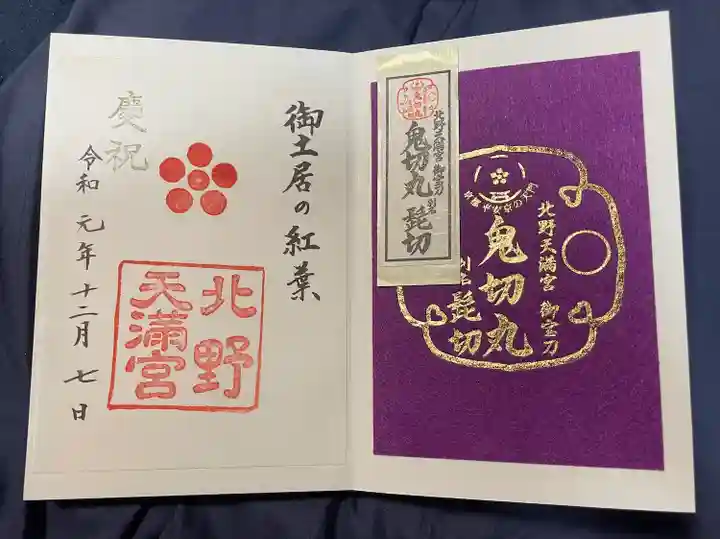 御土居の紅葉
慶祝
令和元年十二月七日
北野
天満宮
北野天満宮 御宝刀
鬼切丸
別名
髭切
北野天満宮 御宝刀
鬼切丸
別名
髭切